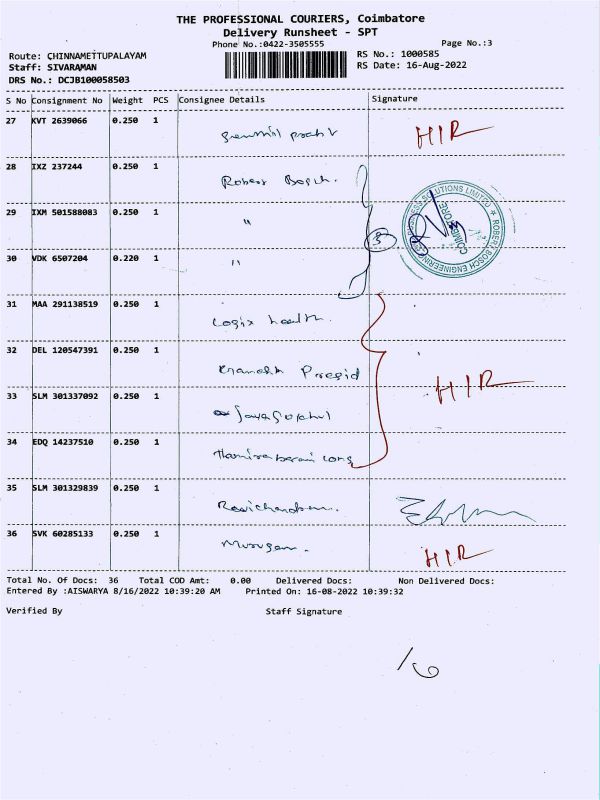 THE PROFESSIONAL COURIERS, Coimbatore
Delivery Runsheet - SPT
Phone No.:0422-3505555
Page No.:3
Route: CHINNAMETTUPALAYAM
RS No.: 1000585
Staff: SIVARAMAN
RS Date: 16-Aug-2022
DRS No.: DCJB100058503
S No Consignment No Weight PCS Consignee Details Signature
27 KVT 2639066 0.250 1
HIR
28 IXZ 237244 0.250 1 Robert Bosch.
29 IXM 501588083 0.250 1 "
3
ROBERT BOSCH ENGINEERING BUSINESS SOLUTIONS LIMITED
COIMBATORE
30 VDK 6507204 0.220 1 "
31 MAA 291138519 0.250 1 Logix health.
32 DEL 120547391 0.250 1
HIR
33 SLM 301337092 0.250 1
34 EDQ 14237510 0.250 1
35 SLM 301329839 0.250 1 Ravichandran.
36 SVK 60285133 0.250 1 Murugan. HIR
Total No. Of Docs: 36 Total COD Amt: 0.00 Delivered Docs: Non Delivered Docs:
Entered By :AISWARYA 8/16/2022 10:39:20 AM Printed On: 16-08-2022 10:39:32
Verified By Staff Signature